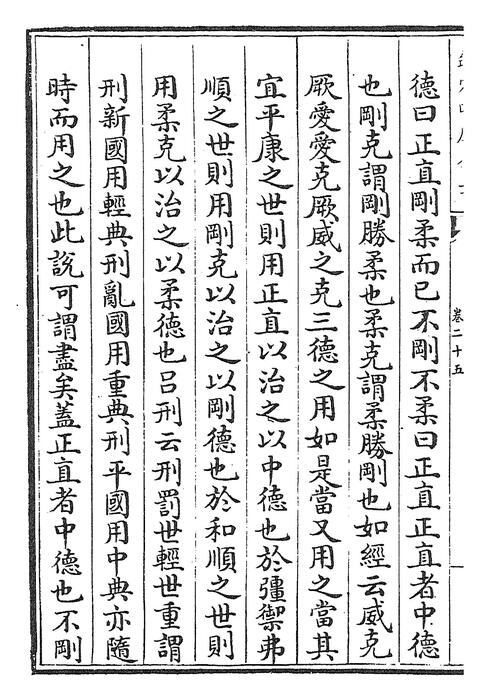 卷二十五
德曰正直剛柔而已不剛不柔曰正直正直者中德
也剛克謂剛勝柔也柔克謂柔勝剛也如經云威克
厥愛愛克厥威之克三德之用如是當又用之當其
宜平康之世則用正直以治之以中德也於彊禦弗
順之世則用剛克以治之以剛德也於和順之世則
用柔克以治之以柔德也吕刑云刑罰世輕世重謂
刑新國用輕典刑亂國用重典刑平國用中典亦隨
時而用之也此說可謂盡矣蓋正直者中德也不剛